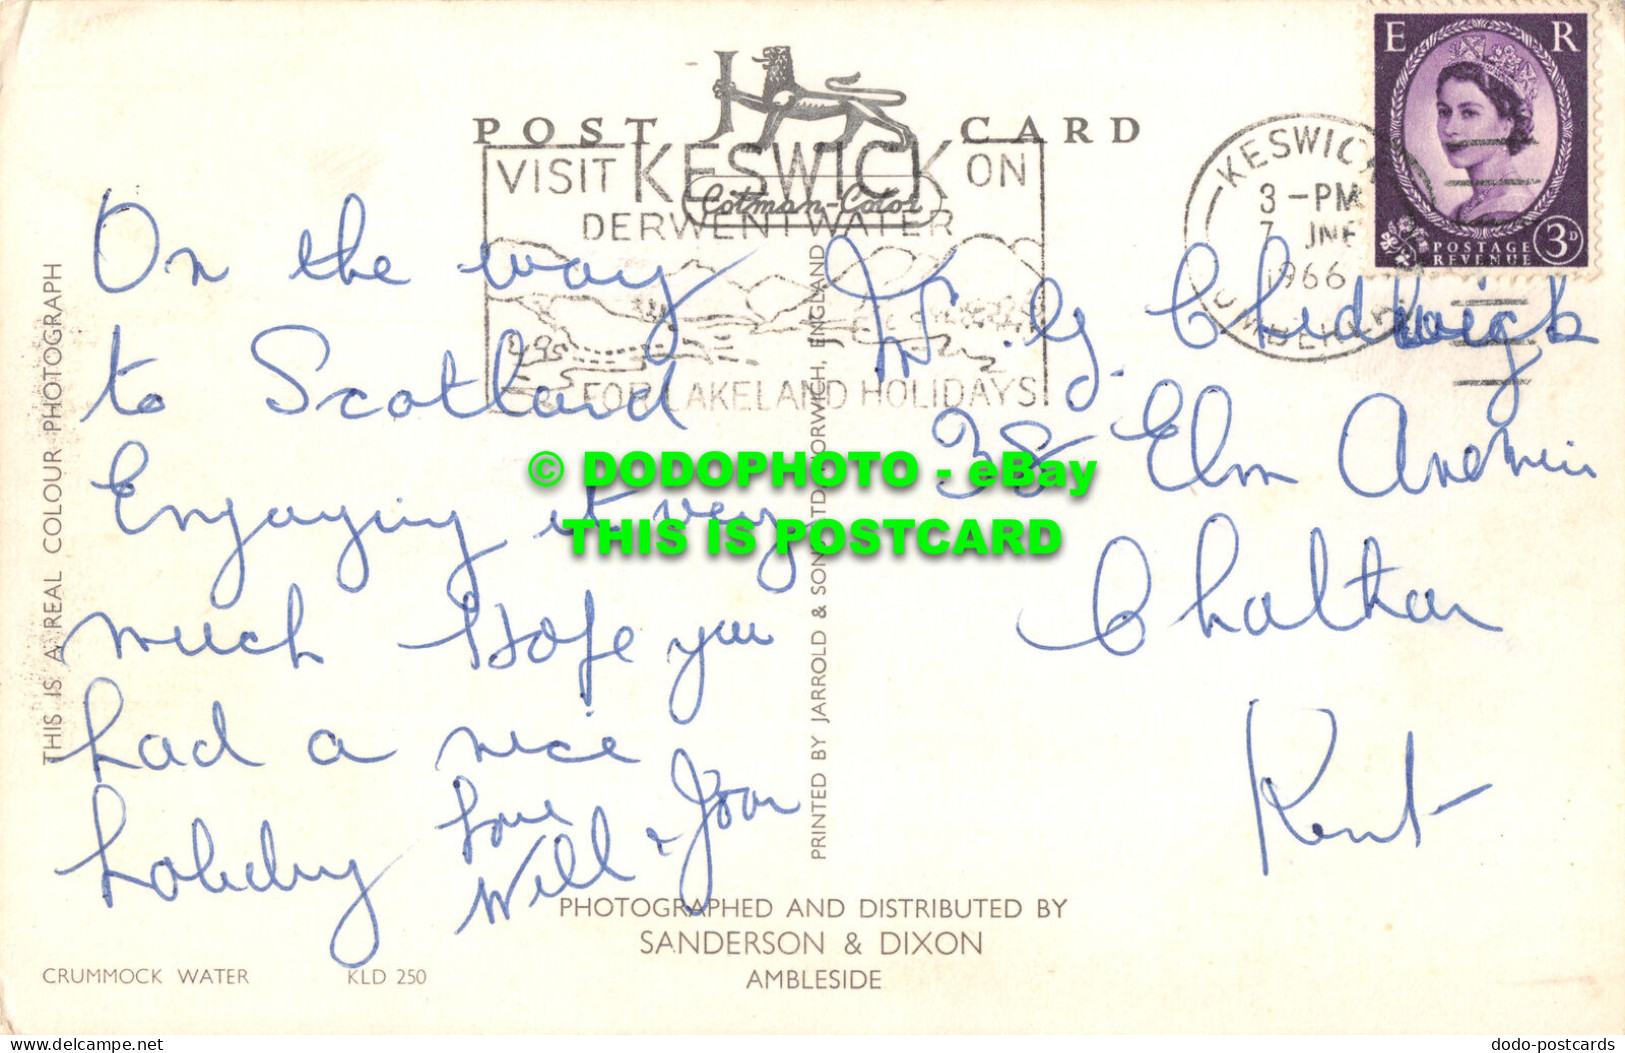 POST CARD
J
Cotman-Color
VISIT KESWICK ON
DERWENTWATER
FOR LAKELAND HOLIDAYS
KESWICK
3-PM
7 JNE
1966
CUMBERLAND
E R
POSTAGE
REVENUE
3D
On the way
to Scotland
Enjoying it very
much Hope you
had a nice
holiday Love
Will & Joan
38 Elm
Kent
THIS IS A REAL COLOUR PHOTOGRAPH
PRINTED BY JARROLD & SONS LTD, NORWICH, ENGLAND
© DODOPHOTO - eBay
THIS IS POSTCARD
PHOTOGRAPHED AND DISTRIBUTED BY
SANDERSON & DIXON
AMBLESIDE
CRUMMOCK WATER KLD 250
delcampe.net
dodo-postcards